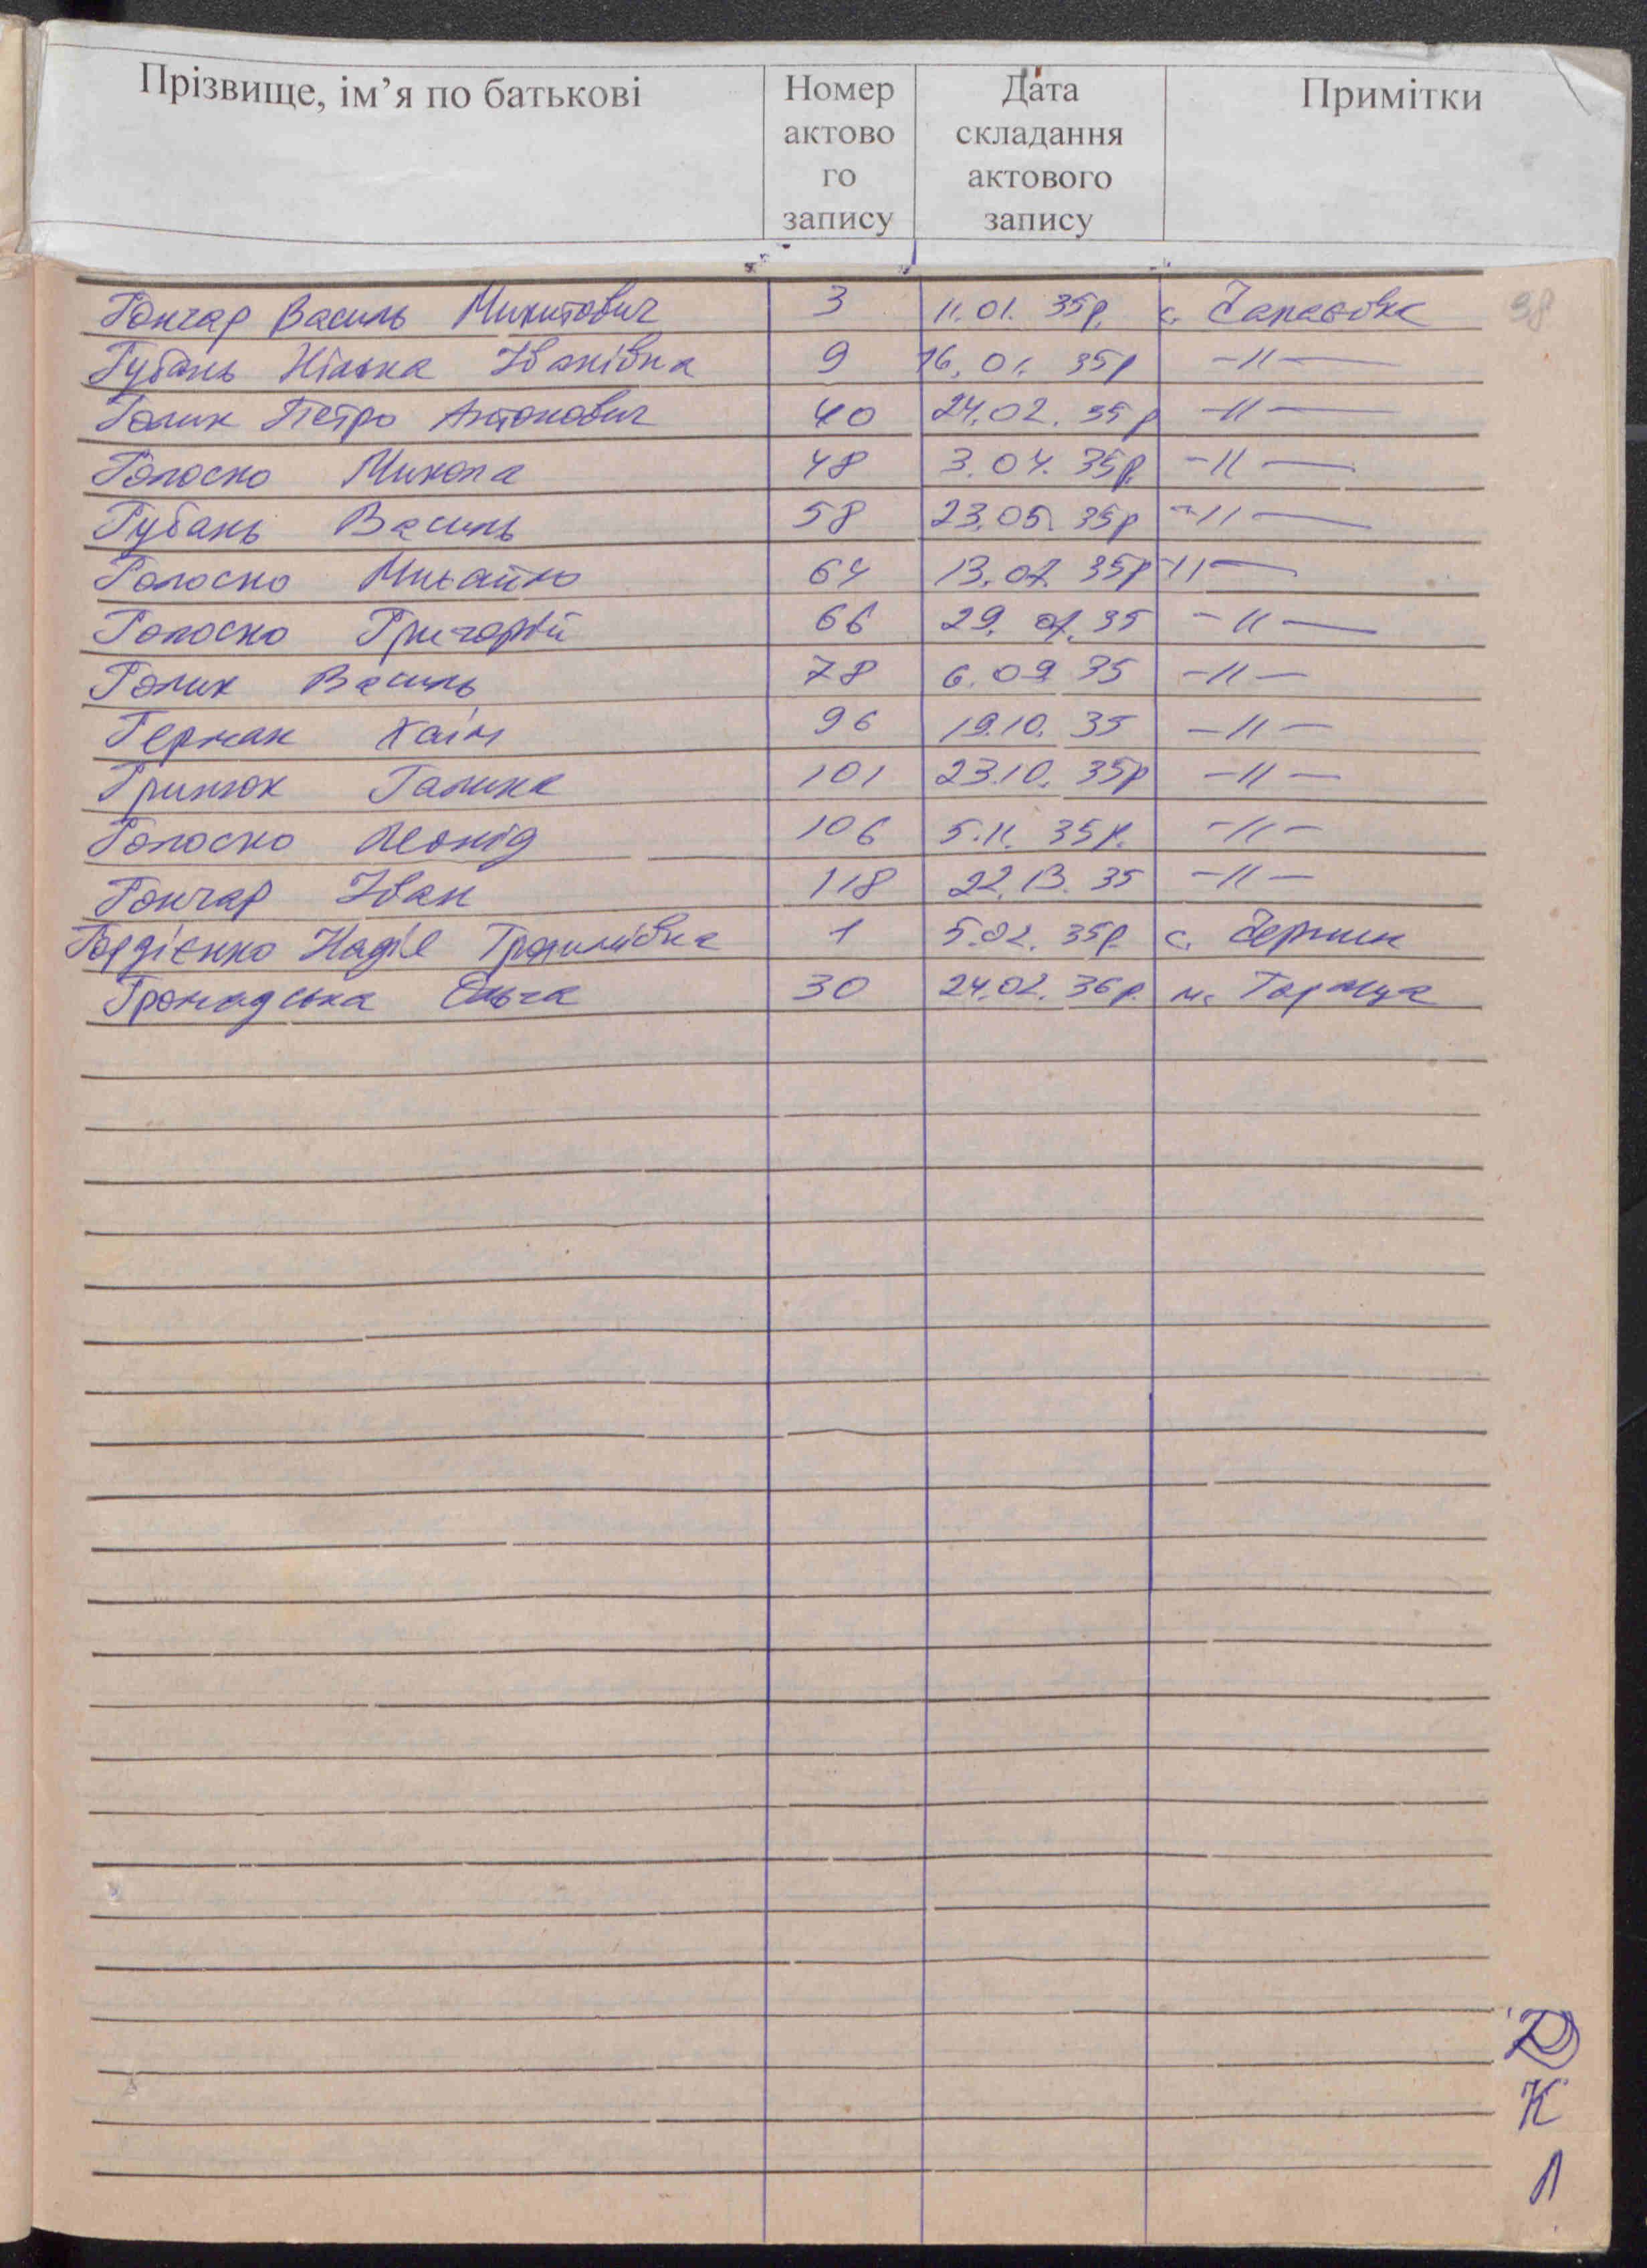 Прізвище, ім’я по батькові Номер актово го запису Дата складання актового запису Примітки
38
Гончар Василь Микитович 3 11.01. 35р. с.
Губань Нінка Іванівна 9 16.01. 35р -//-
Голик Петро Антонович 40 24.02. 35р -//-
Голоско Микола 48 3.04. 35р. -//-
Губань Василь 58 23.05. 35р -//-
Голоско Михайло 64 13.07. 35р -//-
Голоско Григорій 66 29. 07. 35 -//-
Голик Василь 78 6.09 35 -//-
Герман Хаім 96 19.10. 35 -//-
Гринюк Галина 101 23.10. 35р -//-
Голоско Леонід 106 5.11. 35р. -//-
Гончар Іван 118 22.13. 35 -//-
Гордієнко Надія Трохимівна 1 5.02. 35р. с. Чернин
Громадська Ольга 30 24.02. 36р. м. Тараща
Д
К
Л